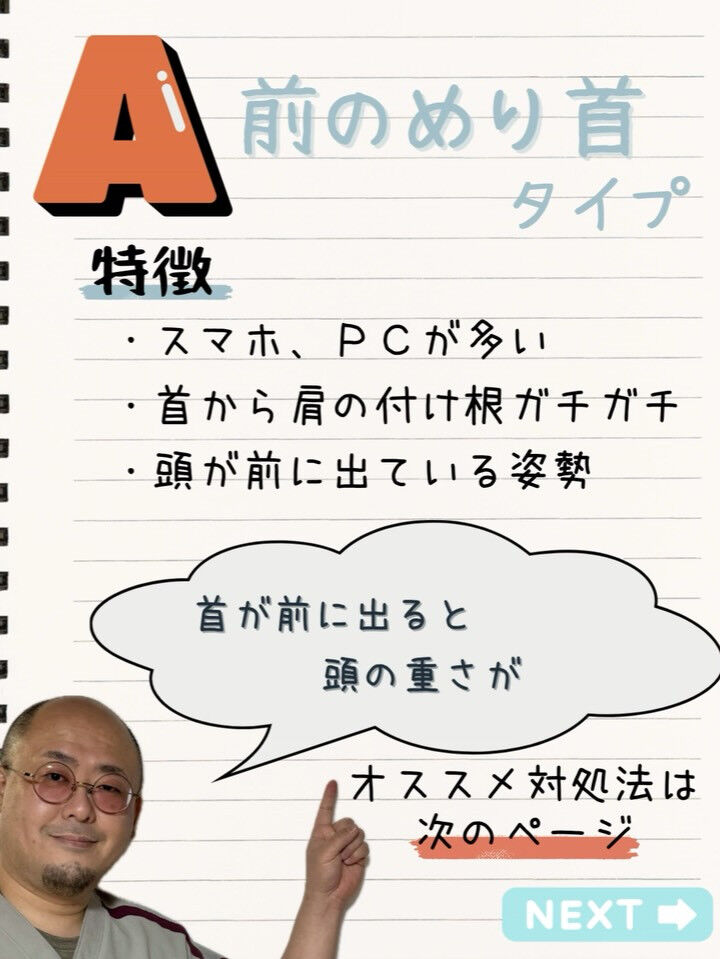 A
前のめり首
タイプ
特徴
・スマホ、PCが多い
・首から肩の付け根ガチガチ
・頭が前に出ている姿勢
首が前に出ると
頭の重さが
オススメ対処法は
次のページ
NEXT